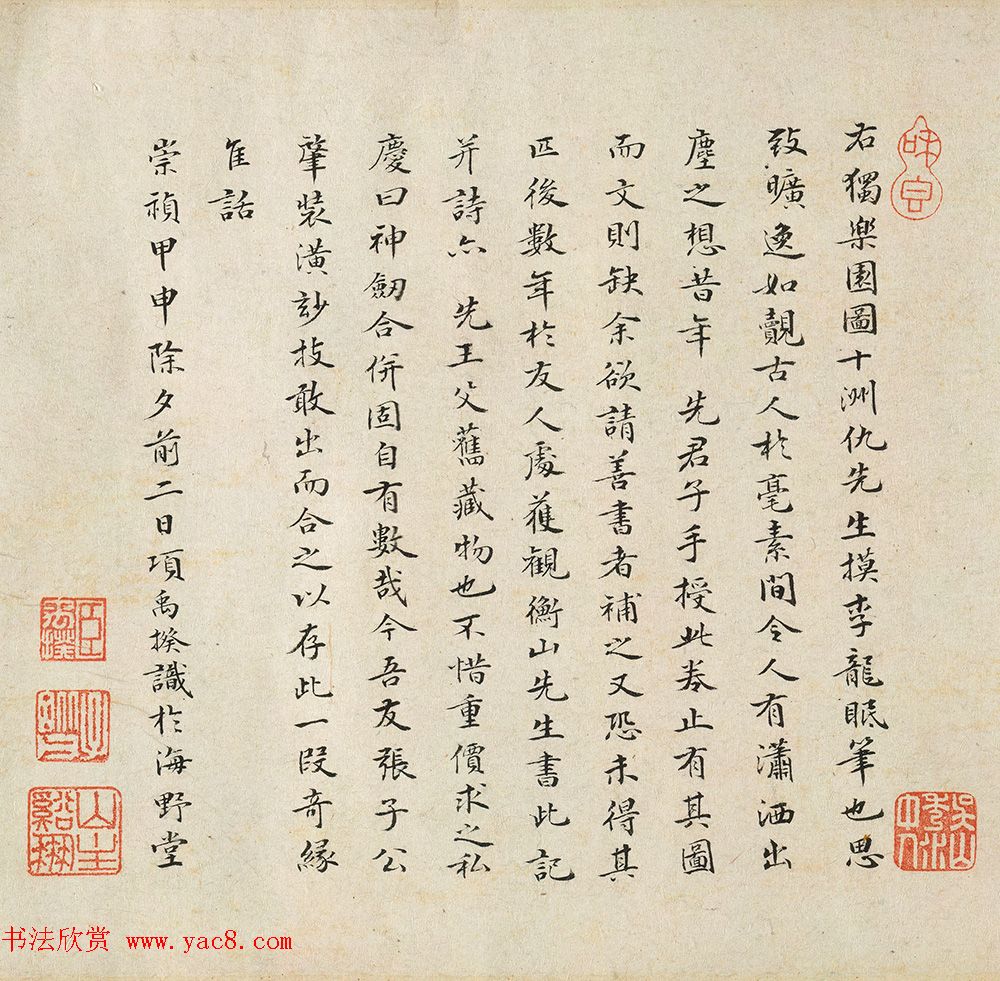 右獨樂園圖十洲仇先生摸李龍眠筆也思
致曠逸如覿古人於毫素間令人有瀟洒出
塵之想昔年 先君子手授此卷止有其圖
而文則缺余欲請善書者補之又恐未得其
匹後數年於友人處獲觀衡山先生書此記
并詩亦 先王父舊藏物也不惜重價求之私
慶曰神劒合併固自有數哉今吾友張子公
肇裝潢妙技敢出而合之以存此一段奇緣
隹話
崇禎甲申除夕前二日項禹揆識於海野堂
书法欣赏 www.yac8.com